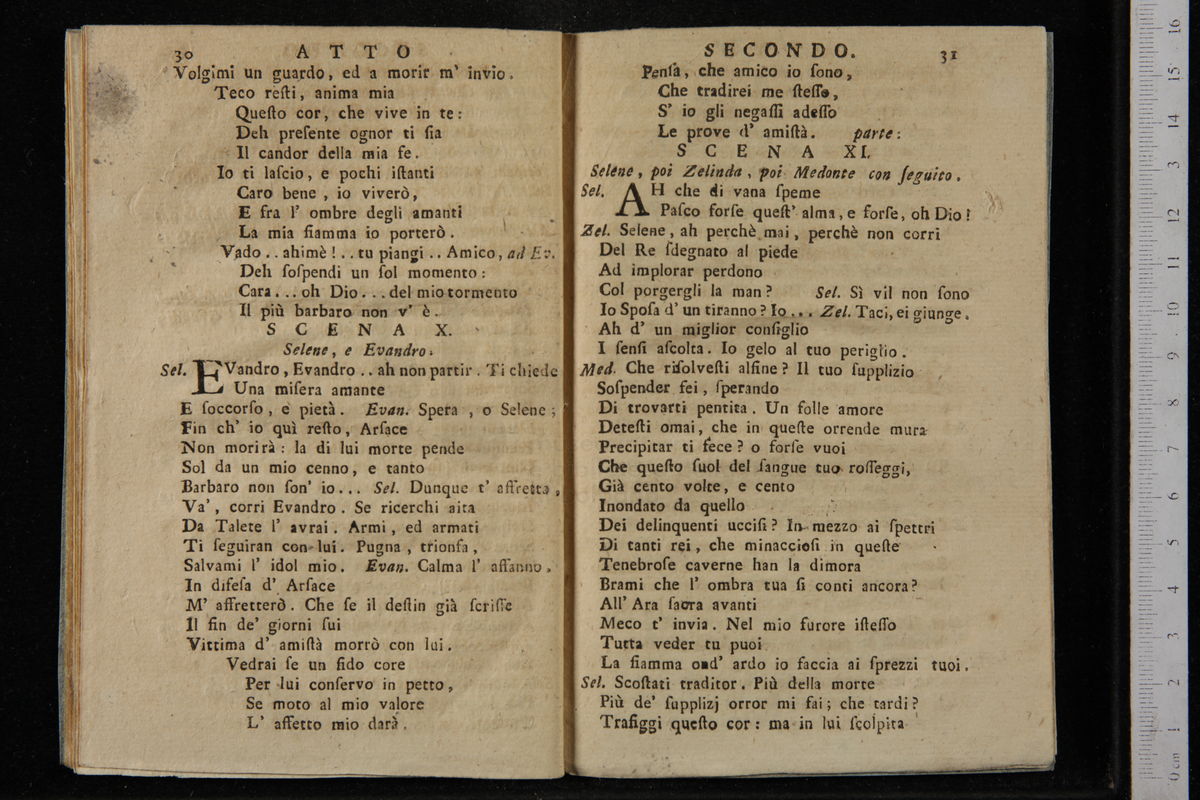 30 ATTO
Volgimi un guardo, ed a morir m' invio.
Teco reſti, anima mia
Queſto cor, che vive in te:
Deh preſente ognor ti ſia
Il candor della mia fe.
Io ti laſcio, e pochi iſtanti
Caro bene, io viverò,
E fra l' ombre degli amanti
La mia fiamma io porterò.
Vado .. ahimè!.. tu piangi .. Amico, ad Ev.
Deh ſoſpendi un ſol momento:
Cara... oh Dio... del mio tormento
Il più barbaro non v' è.
SCENA X.
Selene, e Evandro.
Sel. EVandro, Evandro .. ah non partir. Ti chiede
Una miſera amante
E ſoccorſo, e pietà. Evan. Spera, o Selene;
Fin ch' io quì reſto, Arſace
Non morirà: la di lui morte pende
Sol da un mio cenno, e tanto
Barbaro non ſon' io... Sel. Dunque t' affretta,
Va', corri Evandro. Se ricerchi aita
Da Talete l' avrai. Armi, ed armati
Ti ſeguiran con lui. Pugna, trionfa,
Salvami l' idol mio. Evan. Calma l' affanno.
In difeſa d' Arſace
M' affretterò. Che ſe il deſtin già ſcriſſe
Il fin de' giorni ſui
Vittima d' amiſtà morrò con lui.
Vedrai ſe un fido core
Per lui conſervo in petto,
Se moto al mio valore
L' affetto mio darà.
SECONDO. 31
Penſa, che amico io ſono,
Che tradirei me ſteſſo,
S' io gli negaſſi adeſſo
Le prove d' amiſtà. parte:
SCENA XI.
Selene, poi Zelinda, poi Medonte con ſeguito.
Sel. AH che di vana ſpeme
Paſco forſe queſt' alma, e forſe, oh Dio!
Zel. Selene, ah perchè mai, perchè non corri
Del Re ſdegnato al piede
Ad implorar perdono
Col porgergli la man? Sel. Sì vil non ſono
Io Spoſa d' un tiranno? Io... Zel. Taci, ei giunge.
Ah d' un miglior conſiglio
I ſenſi aſcolta. Io gelo al tuo periglio.
Med. Che riſolveſti alfine? Il tuo ſupplizio
Soſpender fei, ſperando
Di trovarti pentita. Un folle amore
Deteſti omai, che in queſte orrende mura
Precipitar ti fece? o forſe vuoi
Che queſto ſuol del ſangue tuo roſſeggi,
Già cento volte, e cento
Inondato da quello
Dei delinquenti ucciſi? In mezzo ai ſpettri
Di tanti rei, che minaccioſi in queſte
Tenebroſe caverne han la dimora
Brami che l' ombra tua ſi conti ancora?
All' Ara ſacra avanti
Meco t' invia. Nel mio furore iſteſſo
Tutta veder tu puoi
La fiamma ond' ardo io faccia ai ſprezzi tuoi.
Sel. Scoſtati traditor. Più della morte
Più de' ſupplizj orror mi fai; che tardi?
Trafiggi queſto cor: ma in lui ſcolpita